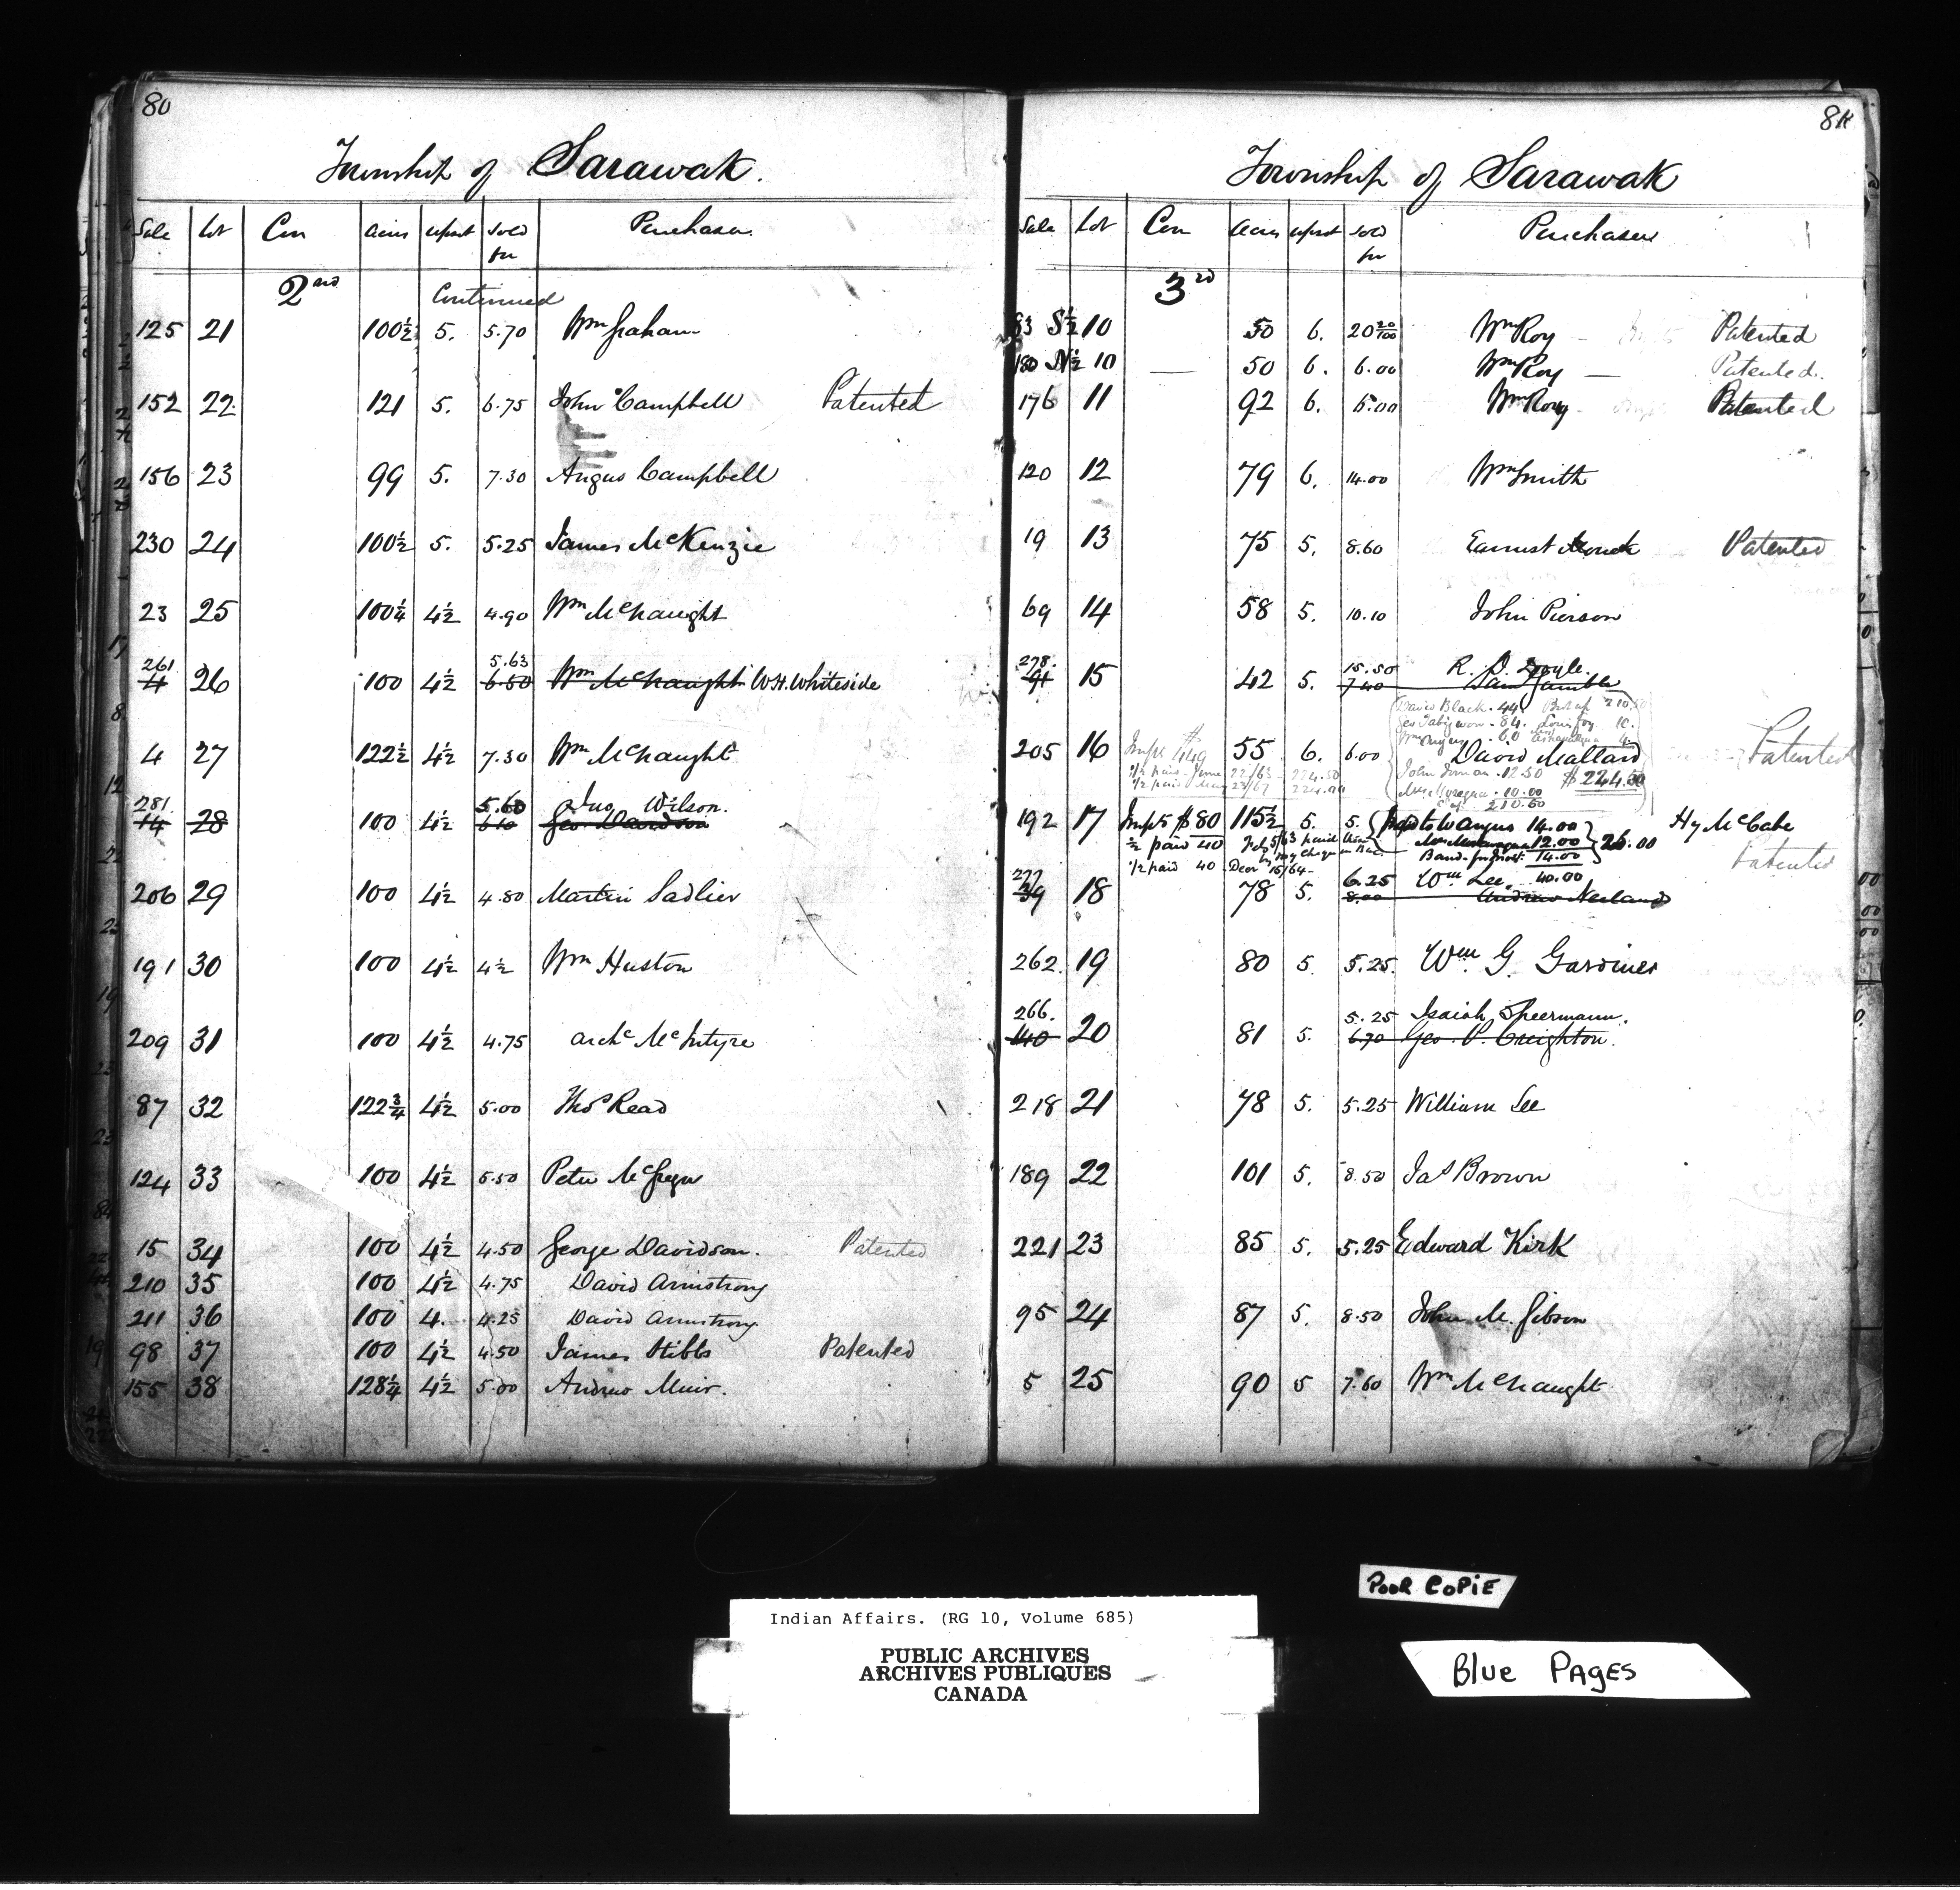 80
Township of Sarawak.
Sale Lot Con Acres upset Sold for Purchaser
2nd Continued
125 21 100½ 5. 5.70 Wm Graham
152 22 121 5. 6.75 John Campbell Patented
156 23 99 5. 7.30 Angus Campbell
230 24 100½ 5. 5.25 James McKenzie
23 25 100¼ 4½ 4.90 Wm McNaught
261 5.63
4 26 100 4½ 6.50 Wm McNaught W.H. Whiteside
4 27 122½ 4½ 7.30 Wm McNaught
281 5.60 Jno Wilson.
14 28 100 4½ 6.10 Geo. Davidson
206 29 100 4½ 4.80 Martin Sadlier
191 30 100 4½ 4½ Wm Huston
209 31 100 4½ 4.75 Archd McIntyre
87 32 122¾ 4½ 5.00 Thos Read
124 33 100 4½ 5.50 Peter McGregor
15 34 100 4½ 4.50 George Davidson. Patented
210 35 100 4½ 4.75 David Armstrong
211 36 100 4. 4.25 David Armstrong
98 37 100 4½ 4.50 James Stibbs Patented
155 38 128¼ 4½ 5.00 Andrew Muir.
81
Township of Sarawak
Sale Lot Con Acres upset Sold for Purchaser
3rd
83 S½ 10 50 6. 20 20/100 Wm Roy Patented
180 N½ 10 50 6. 6.00 Wm Roy Patented.
176 11 92 6. 6.00 Wm Roy Patented
120 12 79 6. 14.00 Wm Smith
19 13 75 5. 8.60 Earnest Patented
69 14 58 5. 10.10 John Pierson
278. 15.50 R. D. Doyle.
91 15 42 5. 7.40 Saml Gamble
David Black. 44. 210.50
84. Louis 10.
Wm Angus 60
205 16 Impts $449 55 6. 6.00 David Mallard Patented
½ paid June 22/63 224.50 John 12.50 $224.50
½ paid May 23/67 224.50 Mrs 10.00
210.50
192 17 Impts $80 115½ 5. 5. to W Angus 14.00 Hy McCabe
½ paid 40 Feby 5/63 paid Mrs 12.00 26.00
by my cheque Band 14.00 Patented
½ paid 40 Decr 15/64 40.00
277 6.25 Wm Lee
39 18 78 5. 8.00 Andrew Neeland
262. 19 80 5. 5.25. Wm G. Gardiner
266. 5.25 Isaiah Speermann.
140 20 81 5. 6.70 Geo. P. Creighton.
218 21 78 5. 5.25 William Lee
189 22 101 5. 8.50 Jas Brown
221 23 85 5. 5.25 Edward Kirk
95 24 87 5. 8.50 John M. Gibson
5 25 90 5 7.60 Wm McNaught
POOR COPIE
Indian Affairs. (RG 10, Volume 685)
PUBLIC ARCHIVES
ARCHIVES PUBLIQUES
CANADA
Blue PAGES